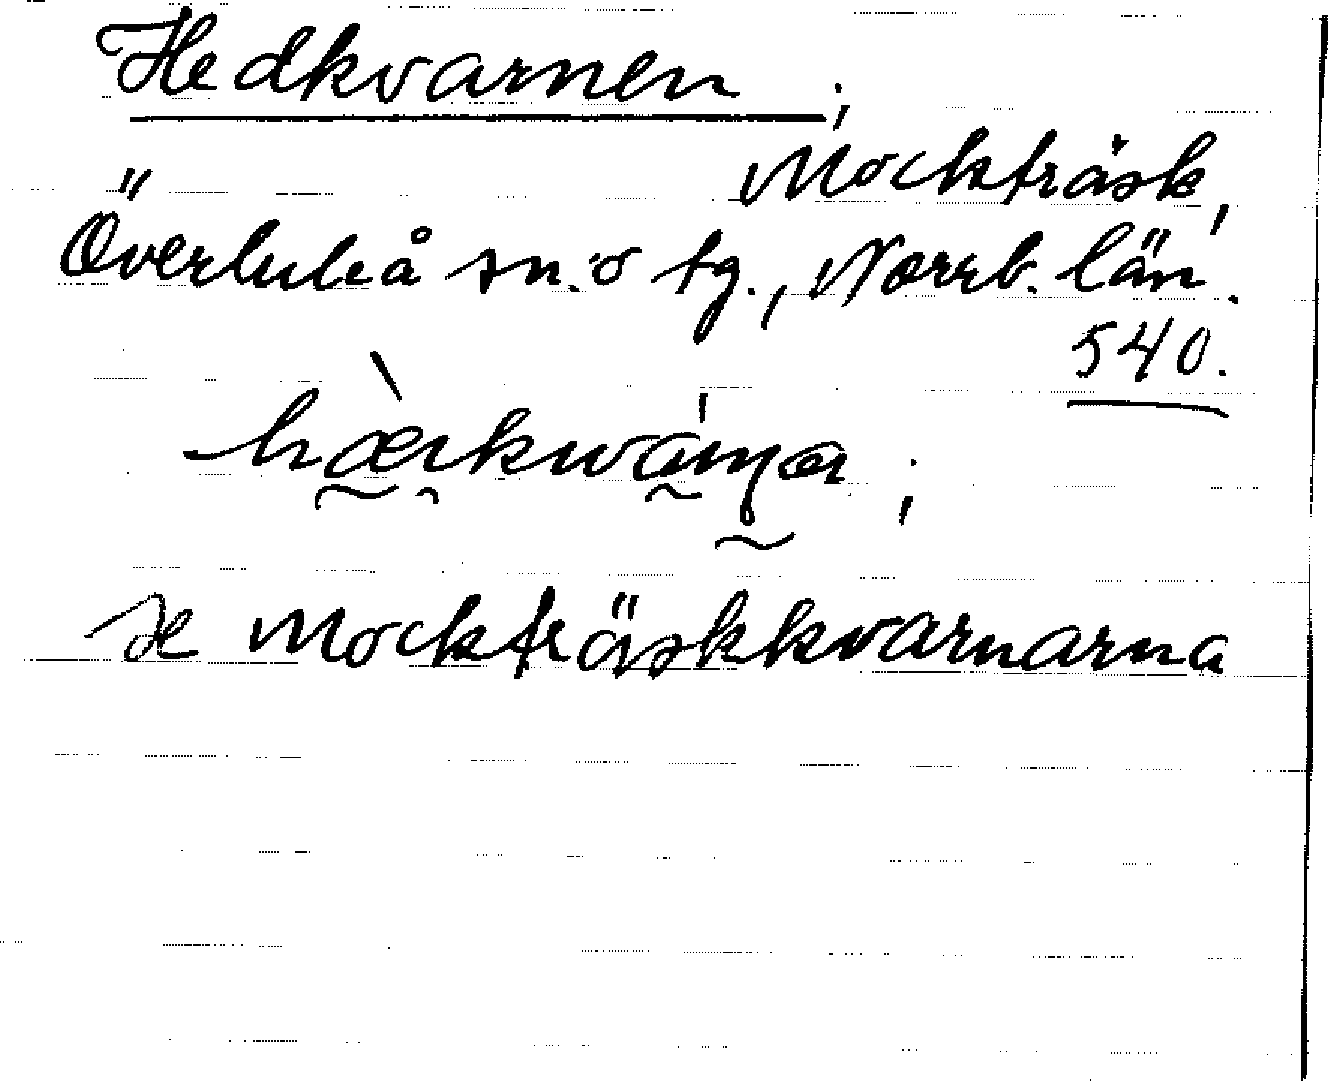 Hedkvarnen;
Mockträsk,
Överluleå sn. o tg., Norrb. län.
540.
se Mockträskkvarnarna